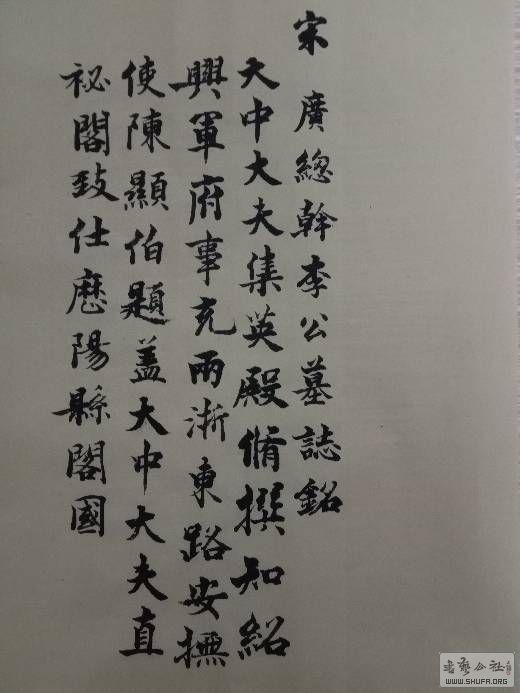 宋 廣總幹李公墓誌銘
大中大夫集英殿脩撰知紹
興軍府事充兩浙東路安撫
使陳顯伯題盖大中大夫直
祕閣致仕歷陽縣閣國
書藝公社
WWW.SHUFA.ORG